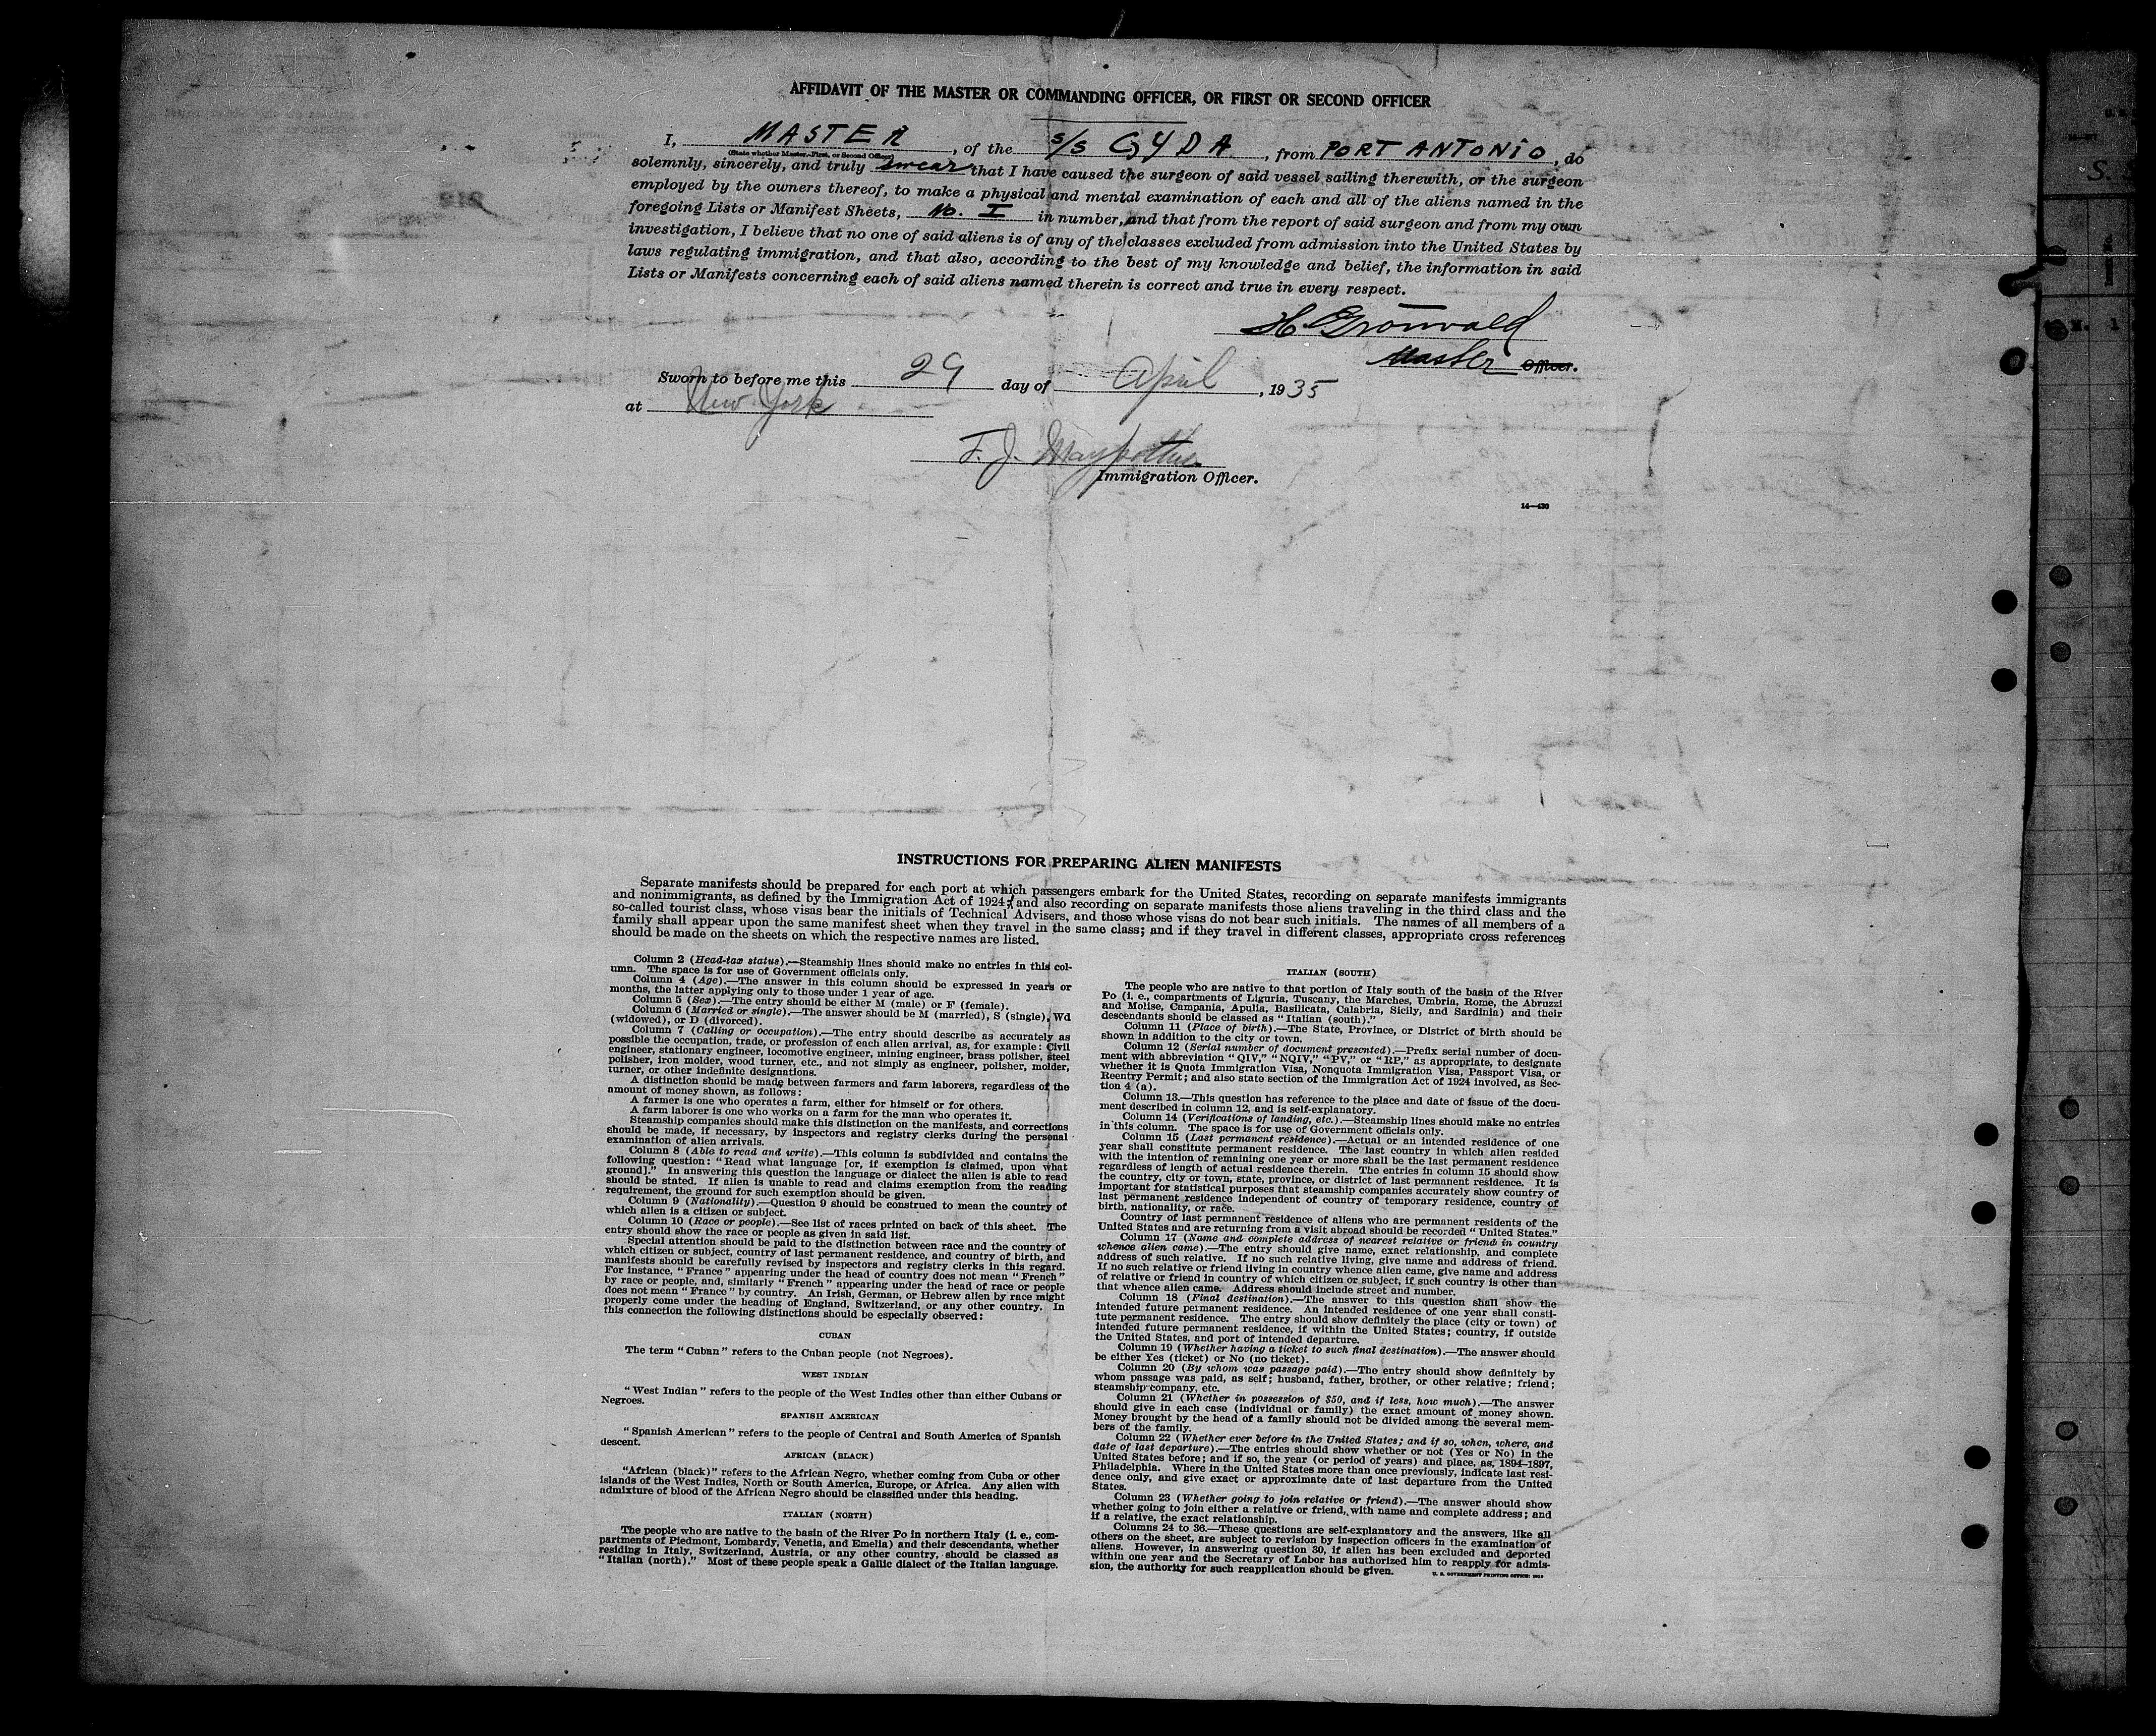 AFFIDAVIT OF THE MASTER OR COMMANDING OFFICER, OR FIRST OR SECOND OFFICER
I, MASTER, of the s/s GYDA, from PORT ANTONIO, do
(State whether Master, First, or Second Officer)
solemnly, sincerely, and truly swear that I have caused the surgeon of said vessel sailing therewith, or the surgeon
employed by the owners thereof, to make a physical and mental examination of each and all of the aliens named in the
foregoing Lists or Manifest Sheets, No. I in number, and that from the report of said surgeon and from my own
investigation, I believe that no one of said aliens is of any of the classes excluded from admission into the United States by
laws regulating immigration, and that also, according to the best of my knowledge and belief, the information in said
Lists or Manifests concerning each of said aliens named therein is correct and true in every respect.
H Gronwald
Master Officer.
Sworn to before me this 29 day of April, 1935
at New York
F. J.
Immigration Officer.
14—430
INSTRUCTIONS FOR PREPARING ALIEN MANIFESTS
Separate manifests should be prepared for each port at which passengers embark for the United States, recording on separate manifests immigrants
and nonimmigrants, as defined by the Immigration Act of 1924; and also recording on separate manifests those aliens traveling in the third class and the
so-called tourist class, whose visas bear the initials of Technical Advisers, and those whose visas do not bear such initials. The names of all members of a
family shall appear upon the same manifest sheet when they travel in the same class; and if they travel in different classes, appropriate cross references
should be made on the sheets on which the respective names are listed.
Column 2 (Head-tax status).—Steamship lines should make no entries in this col-
umn. The space is for use of Government officials only.
Column 4 (Age).—The answer in this column should be expressed in years or
months, the latter applying only to those under 1 year of age.
Column 5 (Sex).—The entry should be either M (male) or F (female).
Column 6 (Married or single).—The answer should be M (married), S (single), Wd
(widowed), or D (divorced).
Column 7 (Calling or occupation).—The entry should describe as accurately as
possible the occupation, trade, or profession of each alien arrival, as, for example: Civil
engineer, stationary engineer, locomotive engineer, mining engineer, brass polisher, steel
polisher, iron molder, wood turner, etc., and not simply as engineer, polisher, molder,
turner, or other indefinite designations.
A distinction should be made between farmers and farm laborers, regardless of the
amount of money shown, as follows:
A farmer is one who operates a farm, either for himself or for others.
A farm laborer is one who works on a farm for the man who operates it.
Steamship companies should make this distinction on the manifests, and corrections
should be made, if necessary, by inspectors and registry clerks during the personal
examination of alien arrivals.
Column 8 (Able to read and write).—This column is subdivided and contains the
following question: "Read what language [or, if exemption is claimed, upon what
ground]." In answering this question the language or dialect the alien is able to read
should be stated. If alien is unable to read and claims exemption from the reading
requirement, the ground for such exemption should be given.
Column 9 (Nationality).—Question 9 should be construed to mean the country of
which alien is a citizen or subject.
Column 10 (Race or people).—See list of races printed on back of this sheet. The
entry should show the race or people as given in said list.
Special attention should be paid to the distinction between race and the country of
which citizen or subject, country of last permanent residence, and country of birth, and
manifests should be carefully revised by inspectors and registry clerks in this regard.
For instance, "France" appearing under the head of country does not mean "French"
by race or people, and, similarly "French" appearing under the head of race or people
does not mean "France" by country. An Irish, German, or Hebrew alien by race might
properly come under the heading of England, Switzerland, or any other country. In
this connection the following distinctions should be especially observed:
CUBAN
The term "Cuban" refers to the Cuban people (not Negroes).
WEST INDIAN
"West Indian" refers to the people of the West Indies other than either Cubans or
Negroes.
SPANISH AMERICAN
"Spanish American" refers to the people of Central and South America of Spanish
descent.
AFRICAN (BLACK)
"African (black)" refers to the African Negro, whether coming from Cuba or other
islands of the West Indies, North or South America, Europe, or Africa. Any alien with
admixture of blood of the African Negro should be classified under this heading.
ITALIAN (NORTH)
The people who are native to the basin of the River Po in northern Italy (i. e., com-
partments of Piedmont, Lombardy, Venetia, and Emelia) and their descendants, whether
residing in Italy, Switzerland, Austria, or any other country, should be classed as
"Italian (north)." Most of these people speak a Gallic dialect of the Italian language.
ITALIAN (SOUTH)
The people who are native to that portion of Italy south of the basin of the River
Po (i. e., compartments of Liguria, Tuscany, the Marches, Umbria, Rome, the Abruzzi
and Molise, Campania, Apulia, Basilicata, Calabria, Sicily, and Sardinia) and their
descendants should be classed as "Italian (south)."
Column 11 (Place of birth).—The State, Province, or District of birth should be
shown in addition to the city or town.
Column 12 (Serial number of document presented).—Prefix serial number of docu-
ment with abbreviation "QIV," "NQIV," "PV," or "RP," as appropriate, to designate
whether it is Quota Immigration Visa, Nonquota Immigration Visa, Passport Visa, or
Reentry Permit; and also state section of the Immigration Act of 1924 involved, as Sec-
tion 4 (a).
Column 13.—This question has reference to the place and date of issue of the docu-
ment described in column 12, and is self-explanatory.
Column 14 (Verifications of landing, etc.).—Steamship lines should make no entries
in this column. The space is for use of Government officials only.
Column 15 (Last permanent residence).—Actual or an intended residence of one
year shall constitute permanent residence. The last country in which alien resided
with the intention of remaining one year or more shall be the last permanent residence
regardless of length of actual residence therein. The entries in column 15 should show
the country, city or town, state, province, or district of last permanent residence. It is
important for statistical purposes that steamship companies accurately show country of
last permanent residence independent of country of temporary residence, country of
birth, nationality, or race.
Country of last permanent residence of aliens who are permanent residents of the
United States and are returning from a visit abroad should be recorded "United States."
Column 17 (Name and complete address of nearest relative or friend in country
whence alien came).—The entry should give name, exact relationship, and complete
address of such relative. If no such relative living, give name and address of friend.
If no such relative or friend living in country whence alien came, give name and address
of relative or friend in country of which citizen or subject, if such country is other than
that whence alien came. Address should include street and number.
Column 18 (Final destination).—The answer to this question shall show the
intended future permanent residence. An intended residence of one year shall consti-
tute permanent residence. The entry should show definitely the place (city or town) of
intended future permanent residence, if within the United States; country, if outside
the United States, and port of intended departure.
Column 19 (Whether having a ticket to such final destination).—The answer should
be either Yes (ticket) or No (no ticket).
Column 20 (By whom was passage paid).—The entry should show definitely by
whom passage was paid, as self; husband, father, brother, or other relative; friend;
steamship company, etc.
Column 21 (Whether in possession of $50, and if less, how much).—The answer
should give in each case (individual or family) the exact amount of money shown.
Money brought by the head of a family should not be divided among the several mem-
bers of the family.
Column 22 (Whether ever before in the United States; and if so, when, where, and
date of last departure).—The entries should show whether or not (Yes or No) in the
United States before; and if so, the year (or period of years) and place, as, 1894–1897,
Philadelphia. Where in the United States more than once previously, indicate last resi-
dence only, and give exact or approximate date of last departure from the United
States.
Column 23 (Whether going to join relative or friend).—The answer should show
whether going to join either a relative or friend, with name and complete address; and
if a relative, the exact relationship.
Columns 24 to 36.—These questions are self-explanatory and the answers, like all
others on the sheet, are subject to revision by inspection officers in the examination of
aliens. However, in answering question 30, if alien has been excluded and deported
within one year and the Secretary of Labor has authorized him to reapply for admis-
sion, the authority for such reapplication should be given.
U. S. GOVERNMENT PRINTING OFFICE